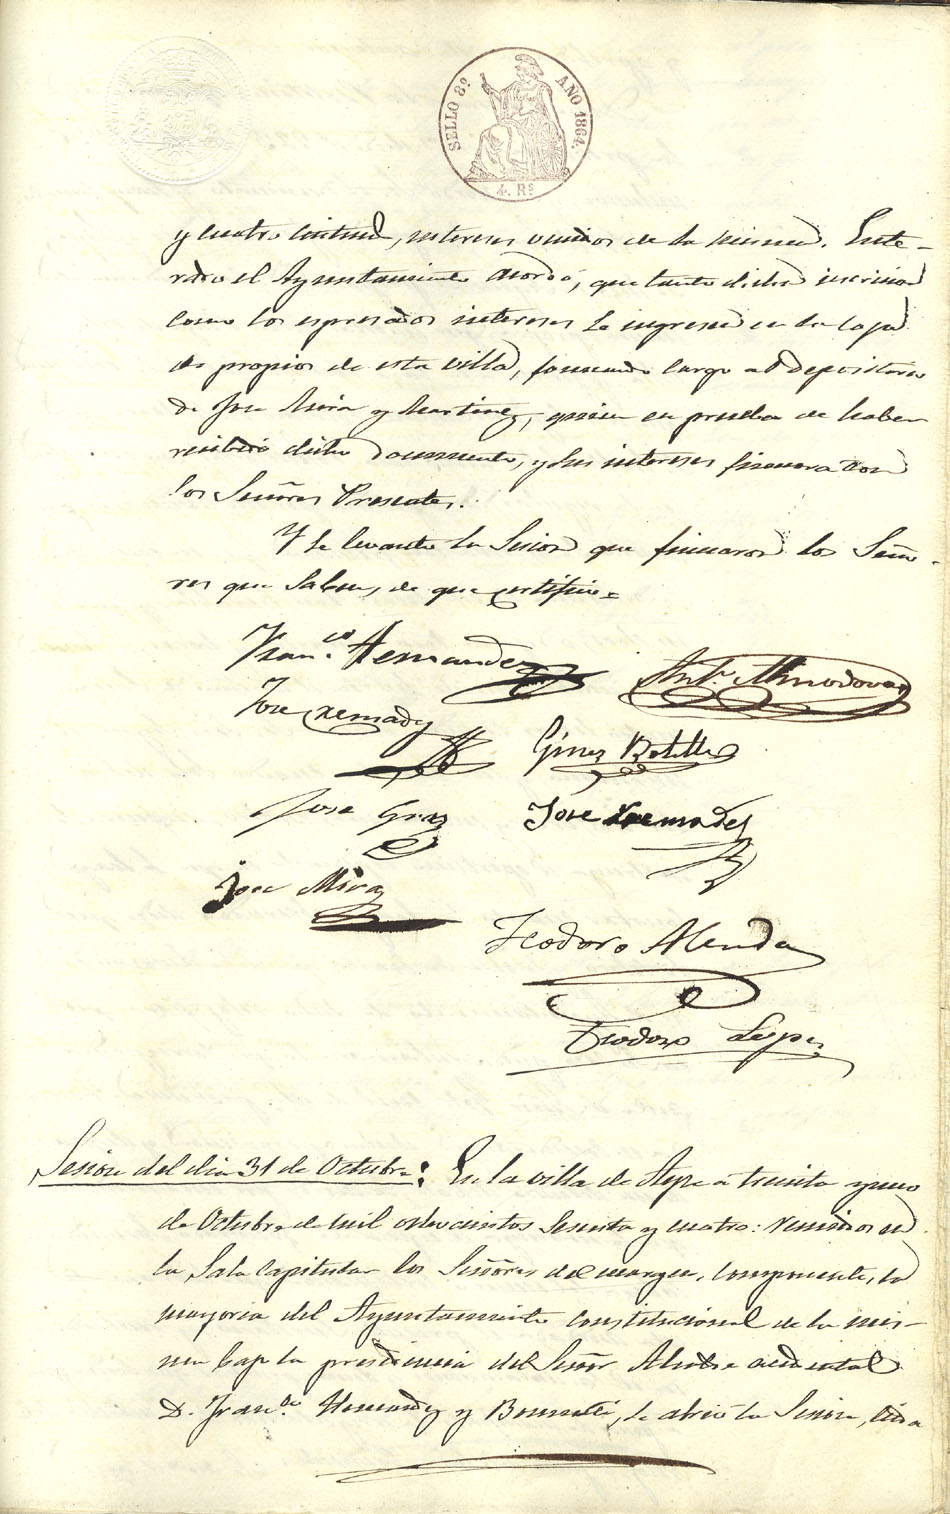 SELLO 8º AÑO 1864.
4. Rs
y cuatro centimos, intereses vencidos de la misma. Ente-
rado el Ayuntamiento acordó, que tanto dicha inscricion
como los espresados intereses se ingresen en la caja
de propios de esta villa, formando cargo al depositario
D. Jose Mira y Martinez, quien en prueba de haber
recibido dicho documento, y sus intereses firmara con
los Señores Presentes.
Y se levanto la Sesion que firmaron los Seño-
res que saben, de que certifico=
Franco. Hernandez
Anto. Almodovar
Jose Cremades
Gines Botella
Jose Gras
Jose Cremades
Jose Mira
Teodoro Alenda
Teodoro Lopez
Sesion del dia 31 de Octubre: En la villa de Aspe a treinta y uno
de Octubre de mil ochocientos sesenta y cuatro: reunidos en
la Sala Capitular los Señores del margen, componente, la
mayoria del Ayuntamiento constitucional de la mis-
ma bajo la presidencia del Señor Alcalde accidental
D. Franco. Hernandez y, se abrió la Sesion, leida